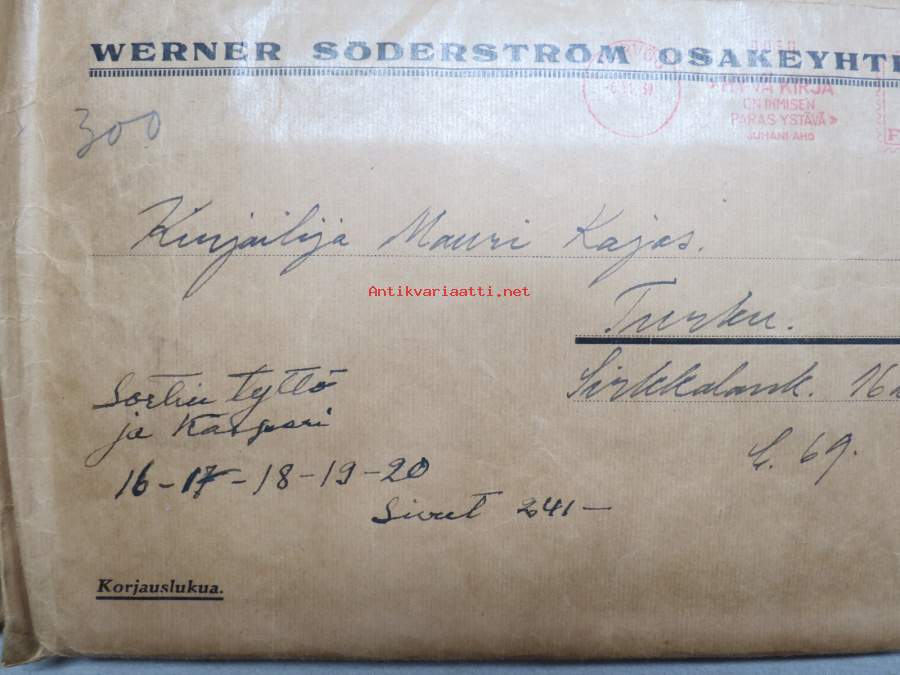 WERNER SÖDERSTRÖM OSAKEYHTI
HYVÄ KIRJA
ON IHMISEN
PARAS YSTÄVÄ»
JUHANI AHO
300
Kirjailija Mauri Kajas.
Antikvariaatti.net
Turku.
Sirkkalank. 16
C. 69.
tyttö
ja Kaspari
16-17-18-19-20
Sivut 241—
Korjauslukua.